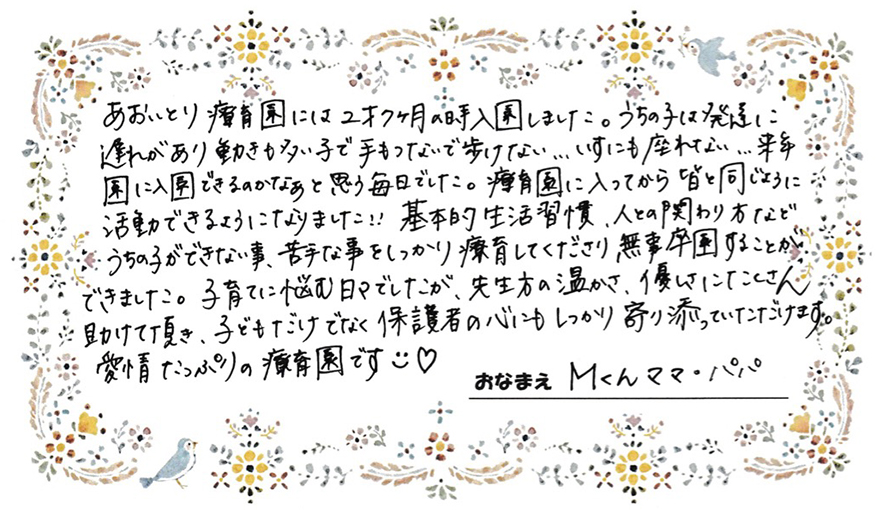 あおいとり療育園には2才7ヶ月の時入園しました。うちの子は発達に
遅れがあり動きも多い子で手もつないで歩けない…いすにも座れない…来年
園に入園できるのかなぁと思う毎日でした。療育園に入ってから皆と同じように
活動できるようになりました!! 基本的生活習慣、人との関わり方など
うちの子ができない事、苦手な事をしっかり療育してくださり無事卒園することが
できました。子育てに悩む日々でしたが、先生方の温かさ、優しさにたくさん
助けて頂き、子どもだけでなく保護者の心にもしっかり寄り添っていただけます。
愛情たっぷりの療育園です☺♡
おなまえ Mくんママ・パパ